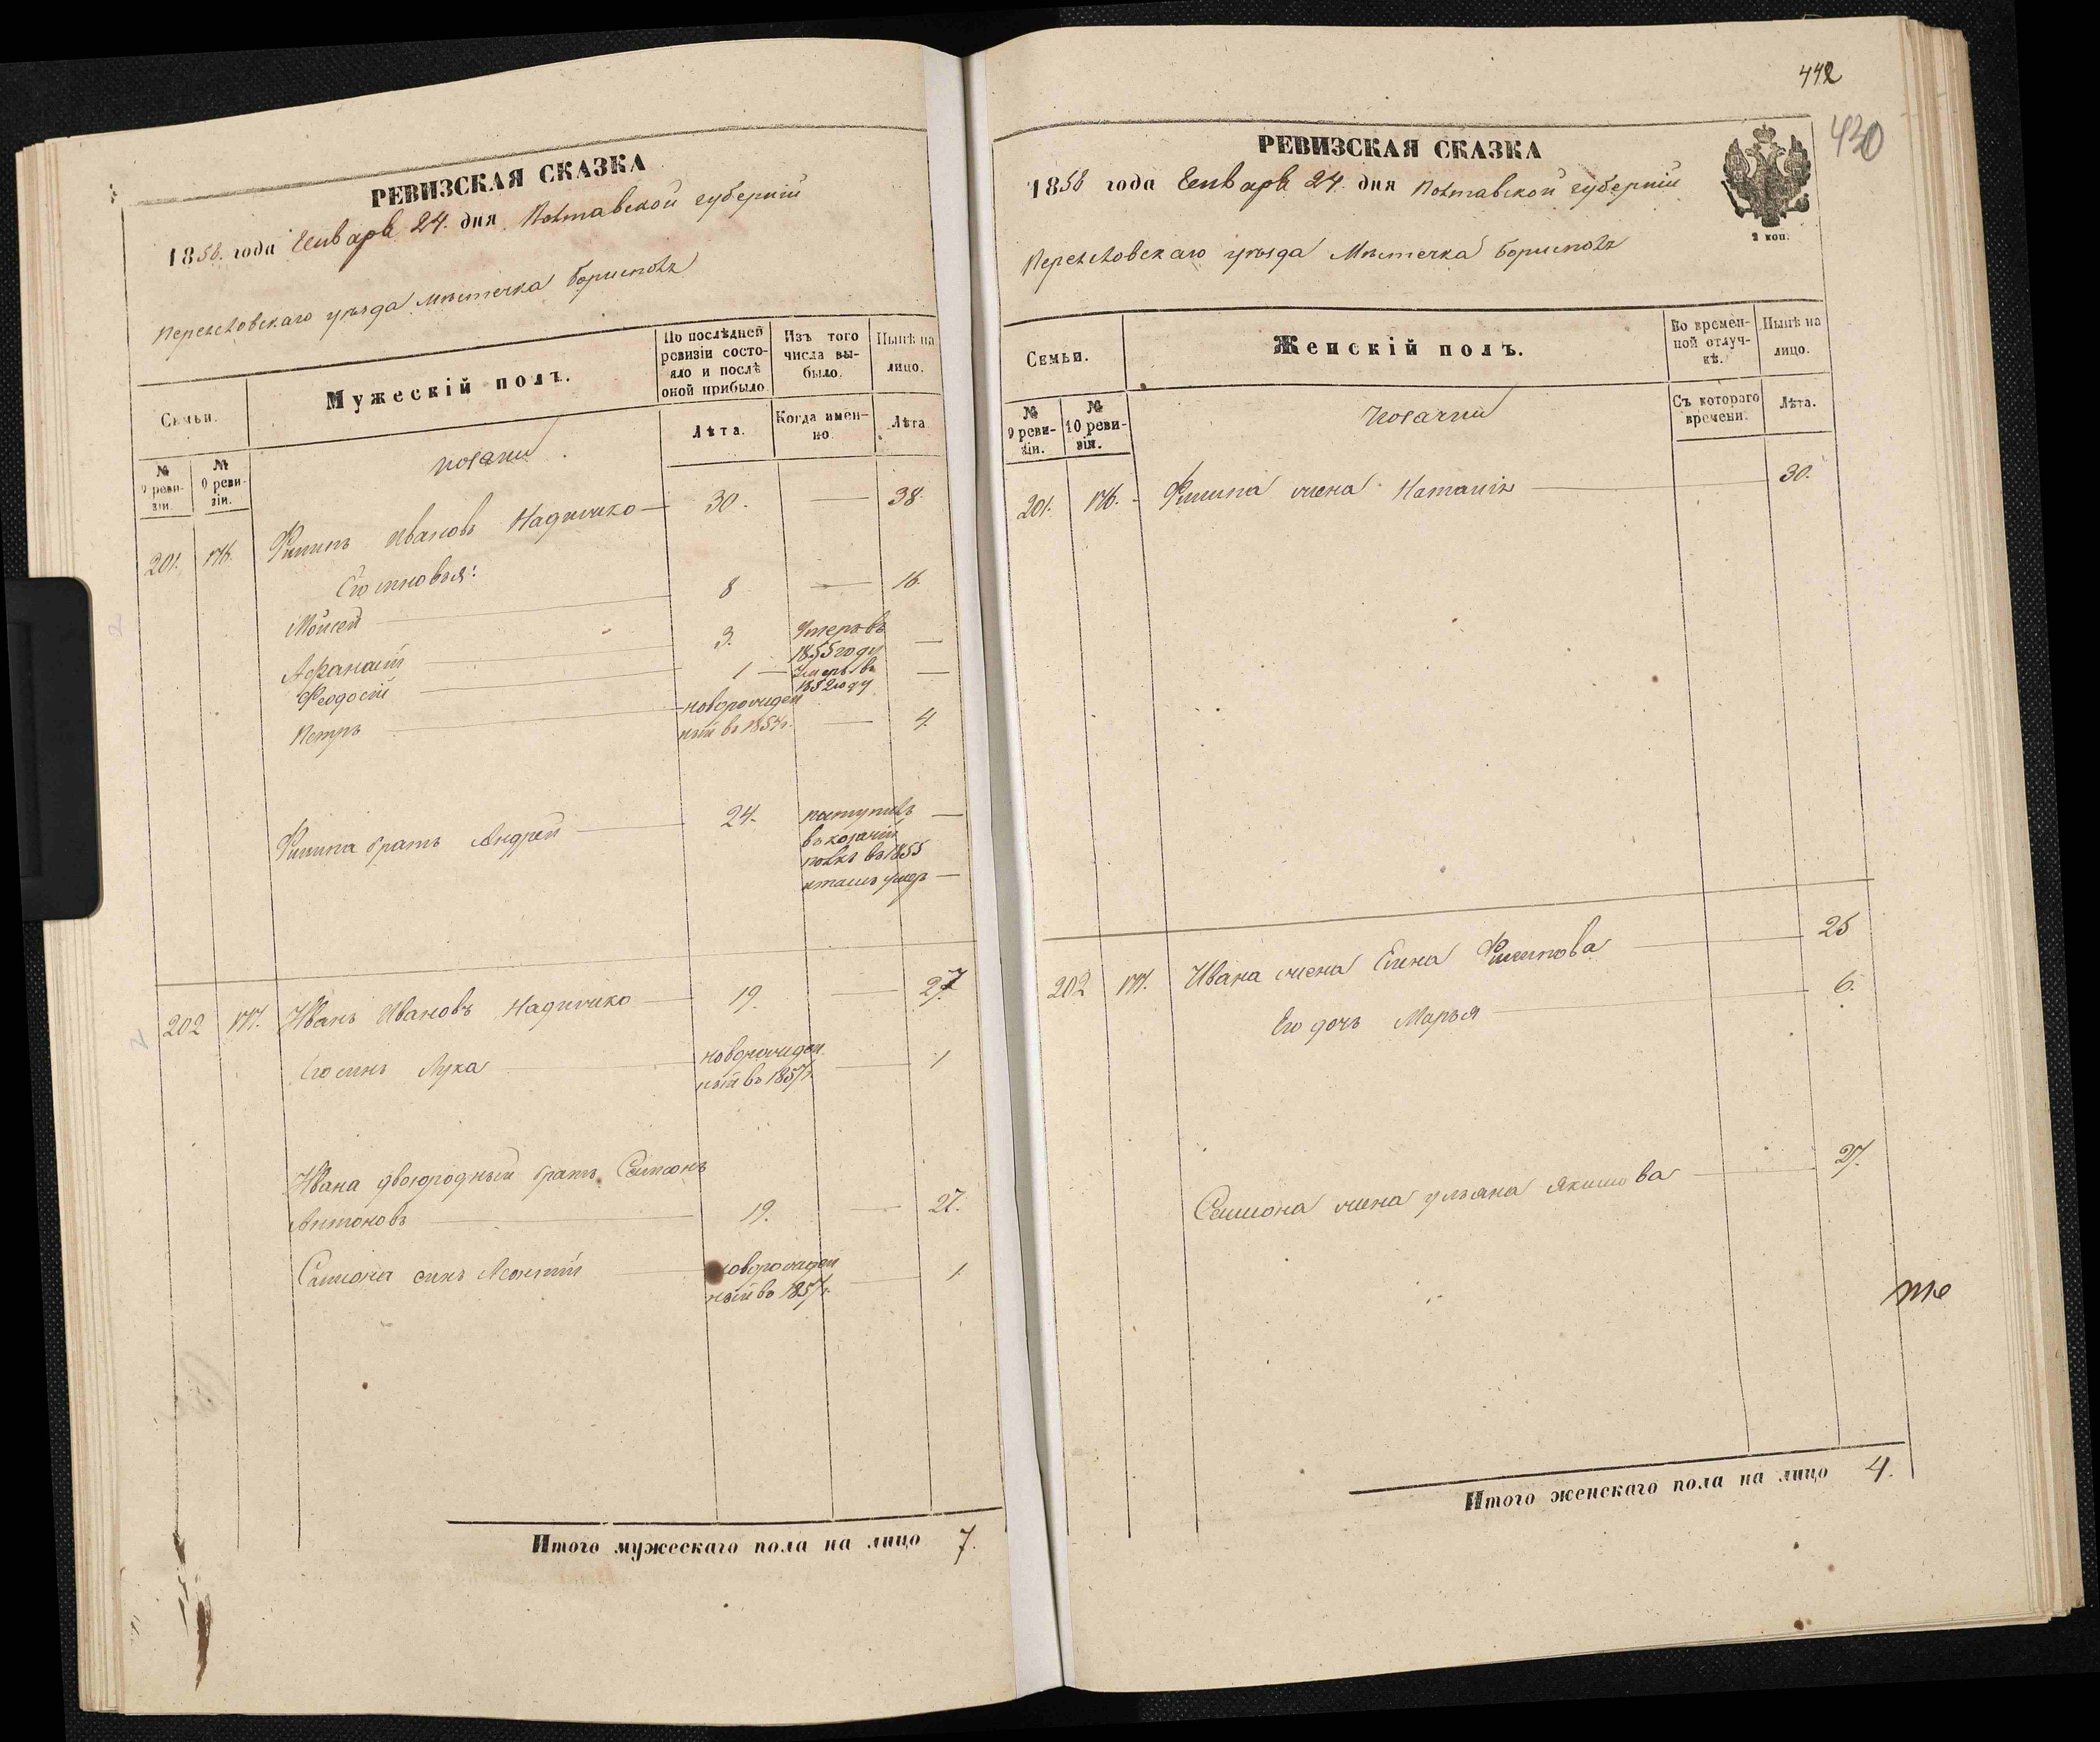 РЕВИЗСКАЯ СКАЗКА
1858. года Генваря 24. дня Полтавской губернiи
Переяславскаго уѣзда мѣстечка Борисполя
Семьи.
Мужескiй полъ.
По послѣдней ревизiи состояло и послѣ оной прибыло.
Изъ того числа выбыло.
Нынѣ на лицо.
№ 9 ревизiи.
№ 10 ревизiи.
Лѣта.
Когда именно.
Лѣта
козаки
201. 176. Филипъ Ивановъ Надточко 30. — 38.
Его сыновья:
Мойсей 8 — 16.
Афанасiй 3. Умеръ въ 1855 году —
Феодосiй 1 — Умеръ въ 1852 году —
Петръ новорожденный въ 1854 г. — 4.
Филипа братъ Андрей 24. поступилъ —
въ козачiй
полкъ въ 1855
и тамъ умеръ —
202 177. Иванъ Ивановъ Надточко 19. — 27.
Его сынъ Лука новорожденный въ 1857 г. — 1
Ивана двоюродный братъ Симіонъ
Антоновъ 19. — 27.
Симіона сынъ Леонтiй новорожденный въ 1857 г. — 1.
Итого мужескаго пола на лицо 7.
442
430
РЕВИЗСКАЯ СКАЗКА
1858 года Генваря 24. дня Полтавской губернiи
2 коп.
Переяславскаго уѣзда Мѣстечка Борисполя
Семьи.
Женскiй полъ.
Во временной отлучкѣ.
Нынѣ на лицо.
№ 9 ревизiи.
№ 10 ревизiи.
Съ котораго времени.
Лѣта.
козачки
201. 176. Филипа жена Наталiя 30.
202 177. Ивана жена Елена Филипова 25
Его дочь Марья 6.
Симіона жена Ульяна Якимова 27.
Итого женскаго пола на лицо 4.